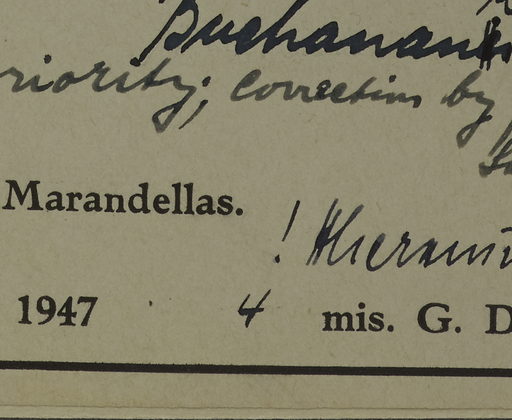 Buchanan
riority; correction by
Marandellas.
! Hierani
1947 4 mis. G. D